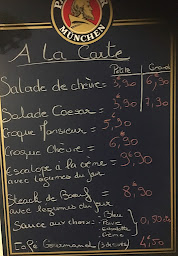 PAULANER
MÜNCHEN
A La Carte
Petite Grande
Salade de chèvre = 5,90 6,90
Salade Caesar = 5,90 7,30
Croque Monsieur = 5,50
Croque Chèvre = 6,90
Escalope à la crème = 9,90
avec légumes du jour
Steack de Boeuf = 8,90
avec légumes du jour
Sauce aux choix = - Bleu
- Poivre 0,90 cts
- Echalotte
- Crème
Café Gourmand (3 desserts) 4,50